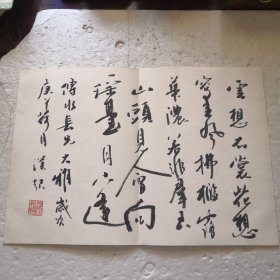 雲想衣裳花想
容春風拂檻露
華濃若非羣玉
山頭見會向
瑤臺月下逢
長兄大雅
庚月